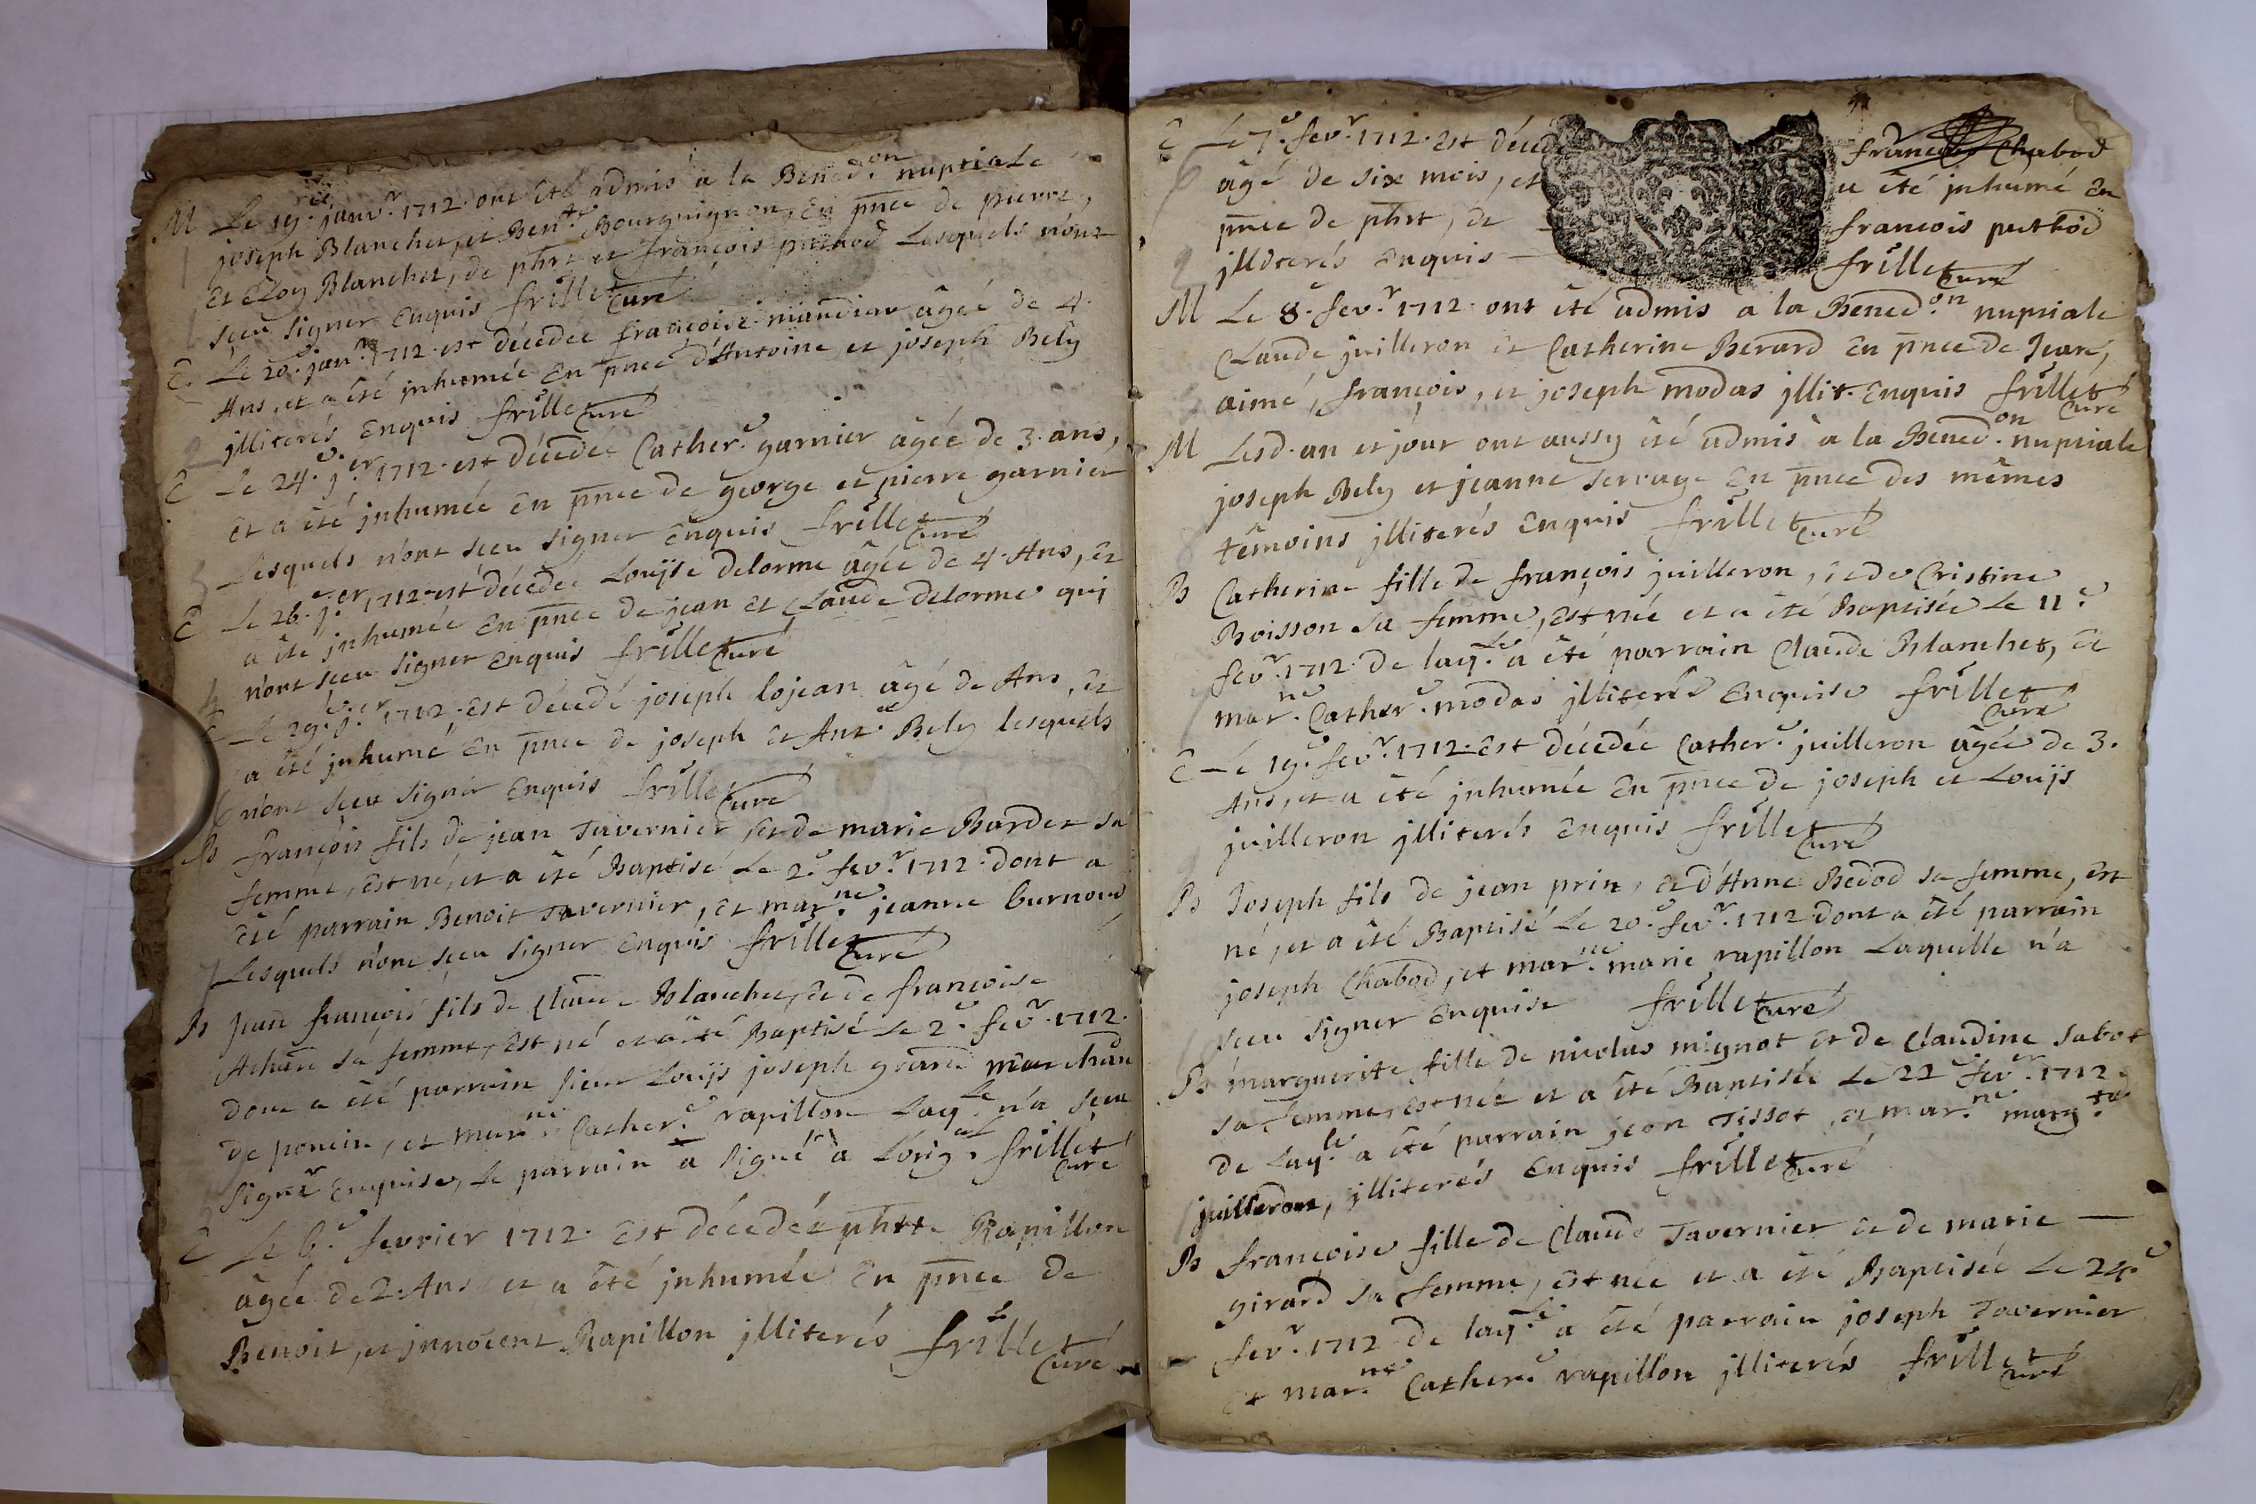 M Le 19.e janv.r 1712. ont été admis a la Bened.on nuptiale
joseph Blanchet, et Ben.te Bourguignon, en pnce de pierre,
et Eloy Blanchet, de phrt et françois Lesquels n'ont
sceu signer Enquis frillet Curé
E. Le 20.e jan.r 1712. est décedée françoise mandier âgée de 4.
Ans, et a été inhumée en pnce d'Antoine et joseph Bely
illiterés Enquis frillet Curé
E Le 24.e j.er 1712. est décedée Cather.e garnier âgée de 3. ans,
et a été inhumée en pnce de george et pierre garnier
Lesquels n'ont sceu signer Enquis frillet Curé
E Le 26.e j.er 1712. est décedée Louyse delorme âgée de 4. Ans, et
a été inhumée en pnce de jean et Claude delorme qui
n'ont sceu signer Enquis frillet Curé
E Le 29.e j.er 1712. est décedé joseph lojean âgé de Ans, et
a été inhumé en pnce de joseph et Ant.e Bely lesquels
n'ont sceu signer Enquis frillet Curé
B françois fils de jean Tavernier, et de marie Bardet sa
femme, est né, et a été Baptisé Le 2.e fev.r 1712. dont a
été parrain Benoit Tavernier, et mar.ne jeanne burnoud
Lesquels n'ont sceu signer Enquis frillet Curé
B Jean françois fils de Claude Blanchet, et de françoise
Achard sa femme, est né et a été Baptisé Le 2.e fev.r 1712.
dont a été parrain sieur Louys joseph girard marchand
de poncin, et mar.ne Cather.e rapillon Laq.le n'a sceu
signer Enquise, Le parrain a signé a L'orig.al frillet Curé
E Le 6.e fevrier 1712. est décedée phtte Rapillon
âgée de 2. Ans et a été inhumée en pnce de
Benoit, et innocent Rapillon illiterés frillet Curé
E Le 7.e fev.r 1712. est décedé françois Chabod
âgé de six mois, et a été inhumé en
pnce de phrt, de françois petbod
illiterés Enquis — frillet Curé
M Le 8.e fev.r 1712. ont été admis a la Bened.on nuptiale
Claude juilleron et Catherine Berard en pnce de Jean,
aimé, françois, et joseph modas illit. Enquis frillet Curé
M Lesd. an et jour ont aussy été admis a la Bened.on nuptiale
joseph Bely et jeanne servage En pnce des mêmes
têmoins illiterés Enquis frillet Curé
B Catherine fille de françois juilleron, et de Cristine
Boisson sa femme, est née et a été Baptisée Le 11.e
fev.r 1712. de laq.le a été parrain Claude Blanchet, et
mar.ne Cather.e modas illiterés Enquise frillet Curé
E Le 19.e fev.r 1712. est décedée Cather.e juilleron âgée de 3.
Ans, et a été inhumée en pnce de joseph et Louys
juilleron illiterés Enquis frillet Curé
B Joseph fils de jean prin, et d'Anne Bedod sa femme, est
né, et a été Baptisé Le 20.e fev.r 1712. dont a été parrain
joseph Chabod, et mar.ne marie rapillon Laquelle n'a
sceu signer Enquise frillet Curé
B marguerite fille de nicolas mignot et de Claudine sabot
sa femme, est née et a été Baptisée Le 22.e fev.er 1712.
de Laq.le a été parrain jean Tissot, et mar.ne marg.te
juilleron, illiterés Enquis frillet Curé
B françoise fille de Claude Tavernier et de marie —
girard sa femme, est née et a été Baptisée Le 24.e
fev.r 1712. de laq.le a été parrain joseph Tavernier
et mar.ne Cather.e rapillon illiterés frillet Curé